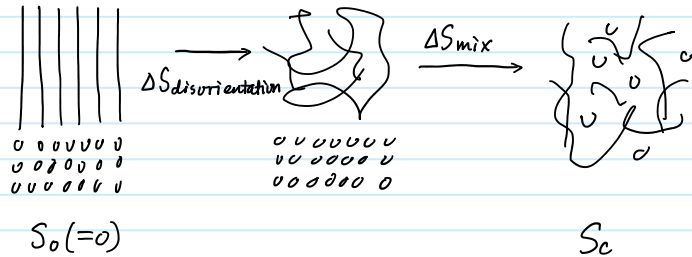 ΔSdisorientation
ΔSmix
S₀(=0)
Sc